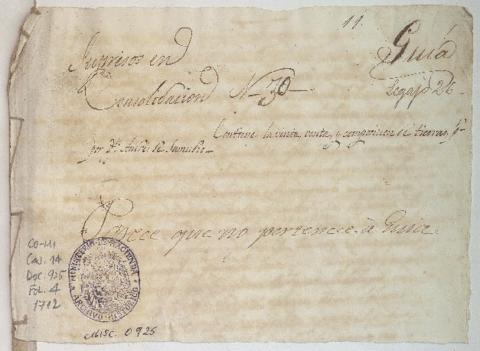 11.
Guia
Ingresos en
Consolidacion N 30
Legajo 26
Contiene la venta, y composicion de tierras,
por Dn. Andres de
Parece que no pertenece à Guia.
CO-MI
Caj. 14
Doc. 925
Fol. 4
1712
MINISTERIO DE HACIENDA
ARCHIVO HISTORICO
MISC. 0925